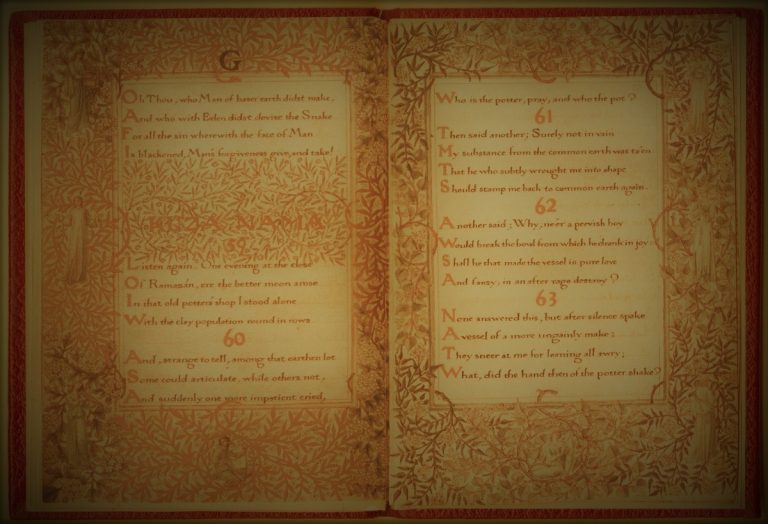 G
Oh Thou, who Man of baser earth didst make,
And who with Eden didst devise the Snake
For all the sin wherewith the face of Man
Is blackened, Man's forgiveness give, and take!
KUZA NAMA
59
Listen again. One evening at the close
Of Ramazan, ere the better moon arose
In that old potter's shop I stood alone
With the clay population round in rows.
60
And, strange to tell, among that earthen lot
Some could articulate, while others not,
And suddenly one more impatient cried,
Who is the potter, pray, and who the pot?
61
Then said another; Surely not in vain
My substance from the common earth was ta'en
That he who subtly wrought me into shape
Should stamp me back to common earth again.
62
Another said; Why, ne'er a peevish boy
Would break the bowl from which he drank in joy:
Shall he that made the vessel in pure love
And fansy, in an after rage destroy?
63
None answered this, but after silence spake
A vessel of a more ungainly make:
They sneer at me for leaning all awry;
What, did the hand then of the potter shake?